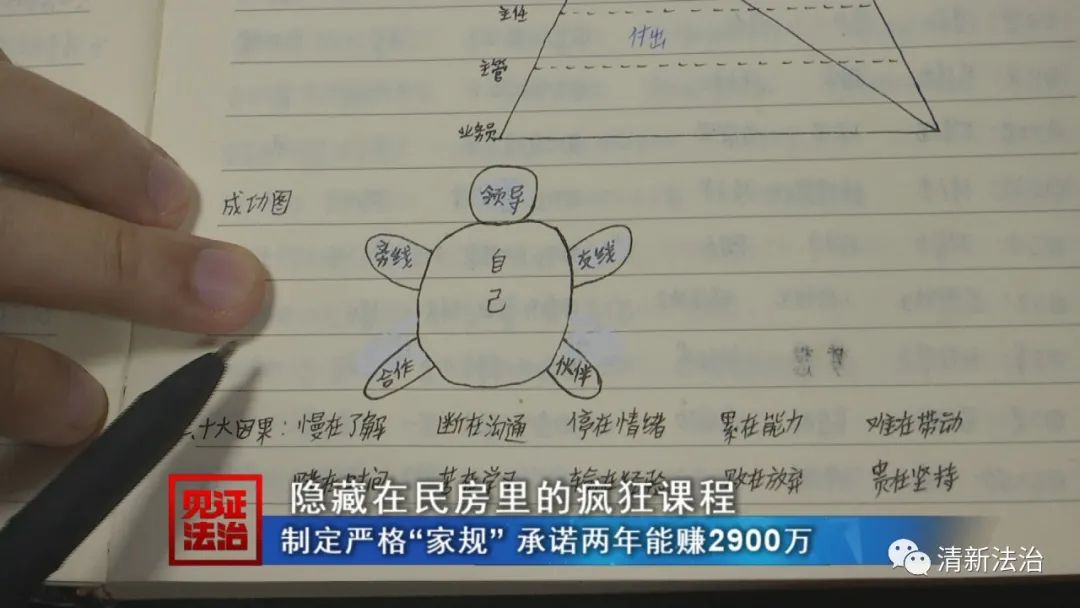 主任
付出
主管
业务员
成功图
领导
旁线
自己
友线
合作
伙伴
十大因果：慢在了解 断在沟通 停在情绪 累在能力 难在带动
败在放弃 贵在坚持
见证法治
隐藏在民房里的疯狂课程
制定严格“家规” 承诺两年能赚2900万
清新法治